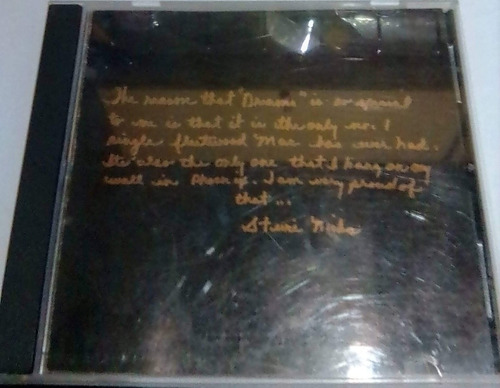 The reason that "Dreams" is so special
to me is that it is the only no. 1
single Fleetwood Mac has ever had.
Its also the only one that I hang on my
wall in . I am very proud of
that...
Stevie Nicks